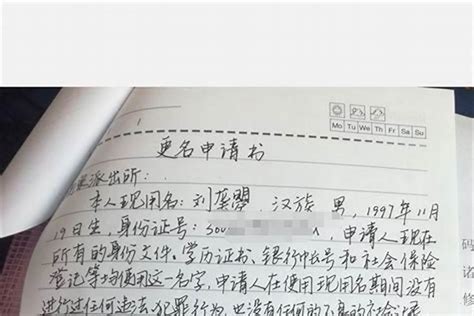 Mo Tu We Th Fr Sa Su
更名申请书
派出所：
本人现用名：刘 汉族 男，1997年11月
19日生，身份证号：，申请人现在
所有的身份文件。学历证书、银行帐号和社会保险
登记等均使用这一名字，申请人在使用现用名期间没有
进行过任何违法、犯罪行为，也没有任何的不良的社会
码
修